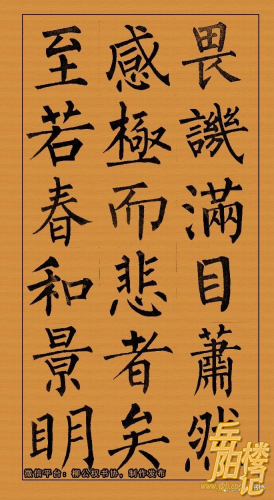 畏譏滿目蕭然
感極而悲者矣
至若春和景明
岳阳楼记
微信平台:柳公权书协,制作发布